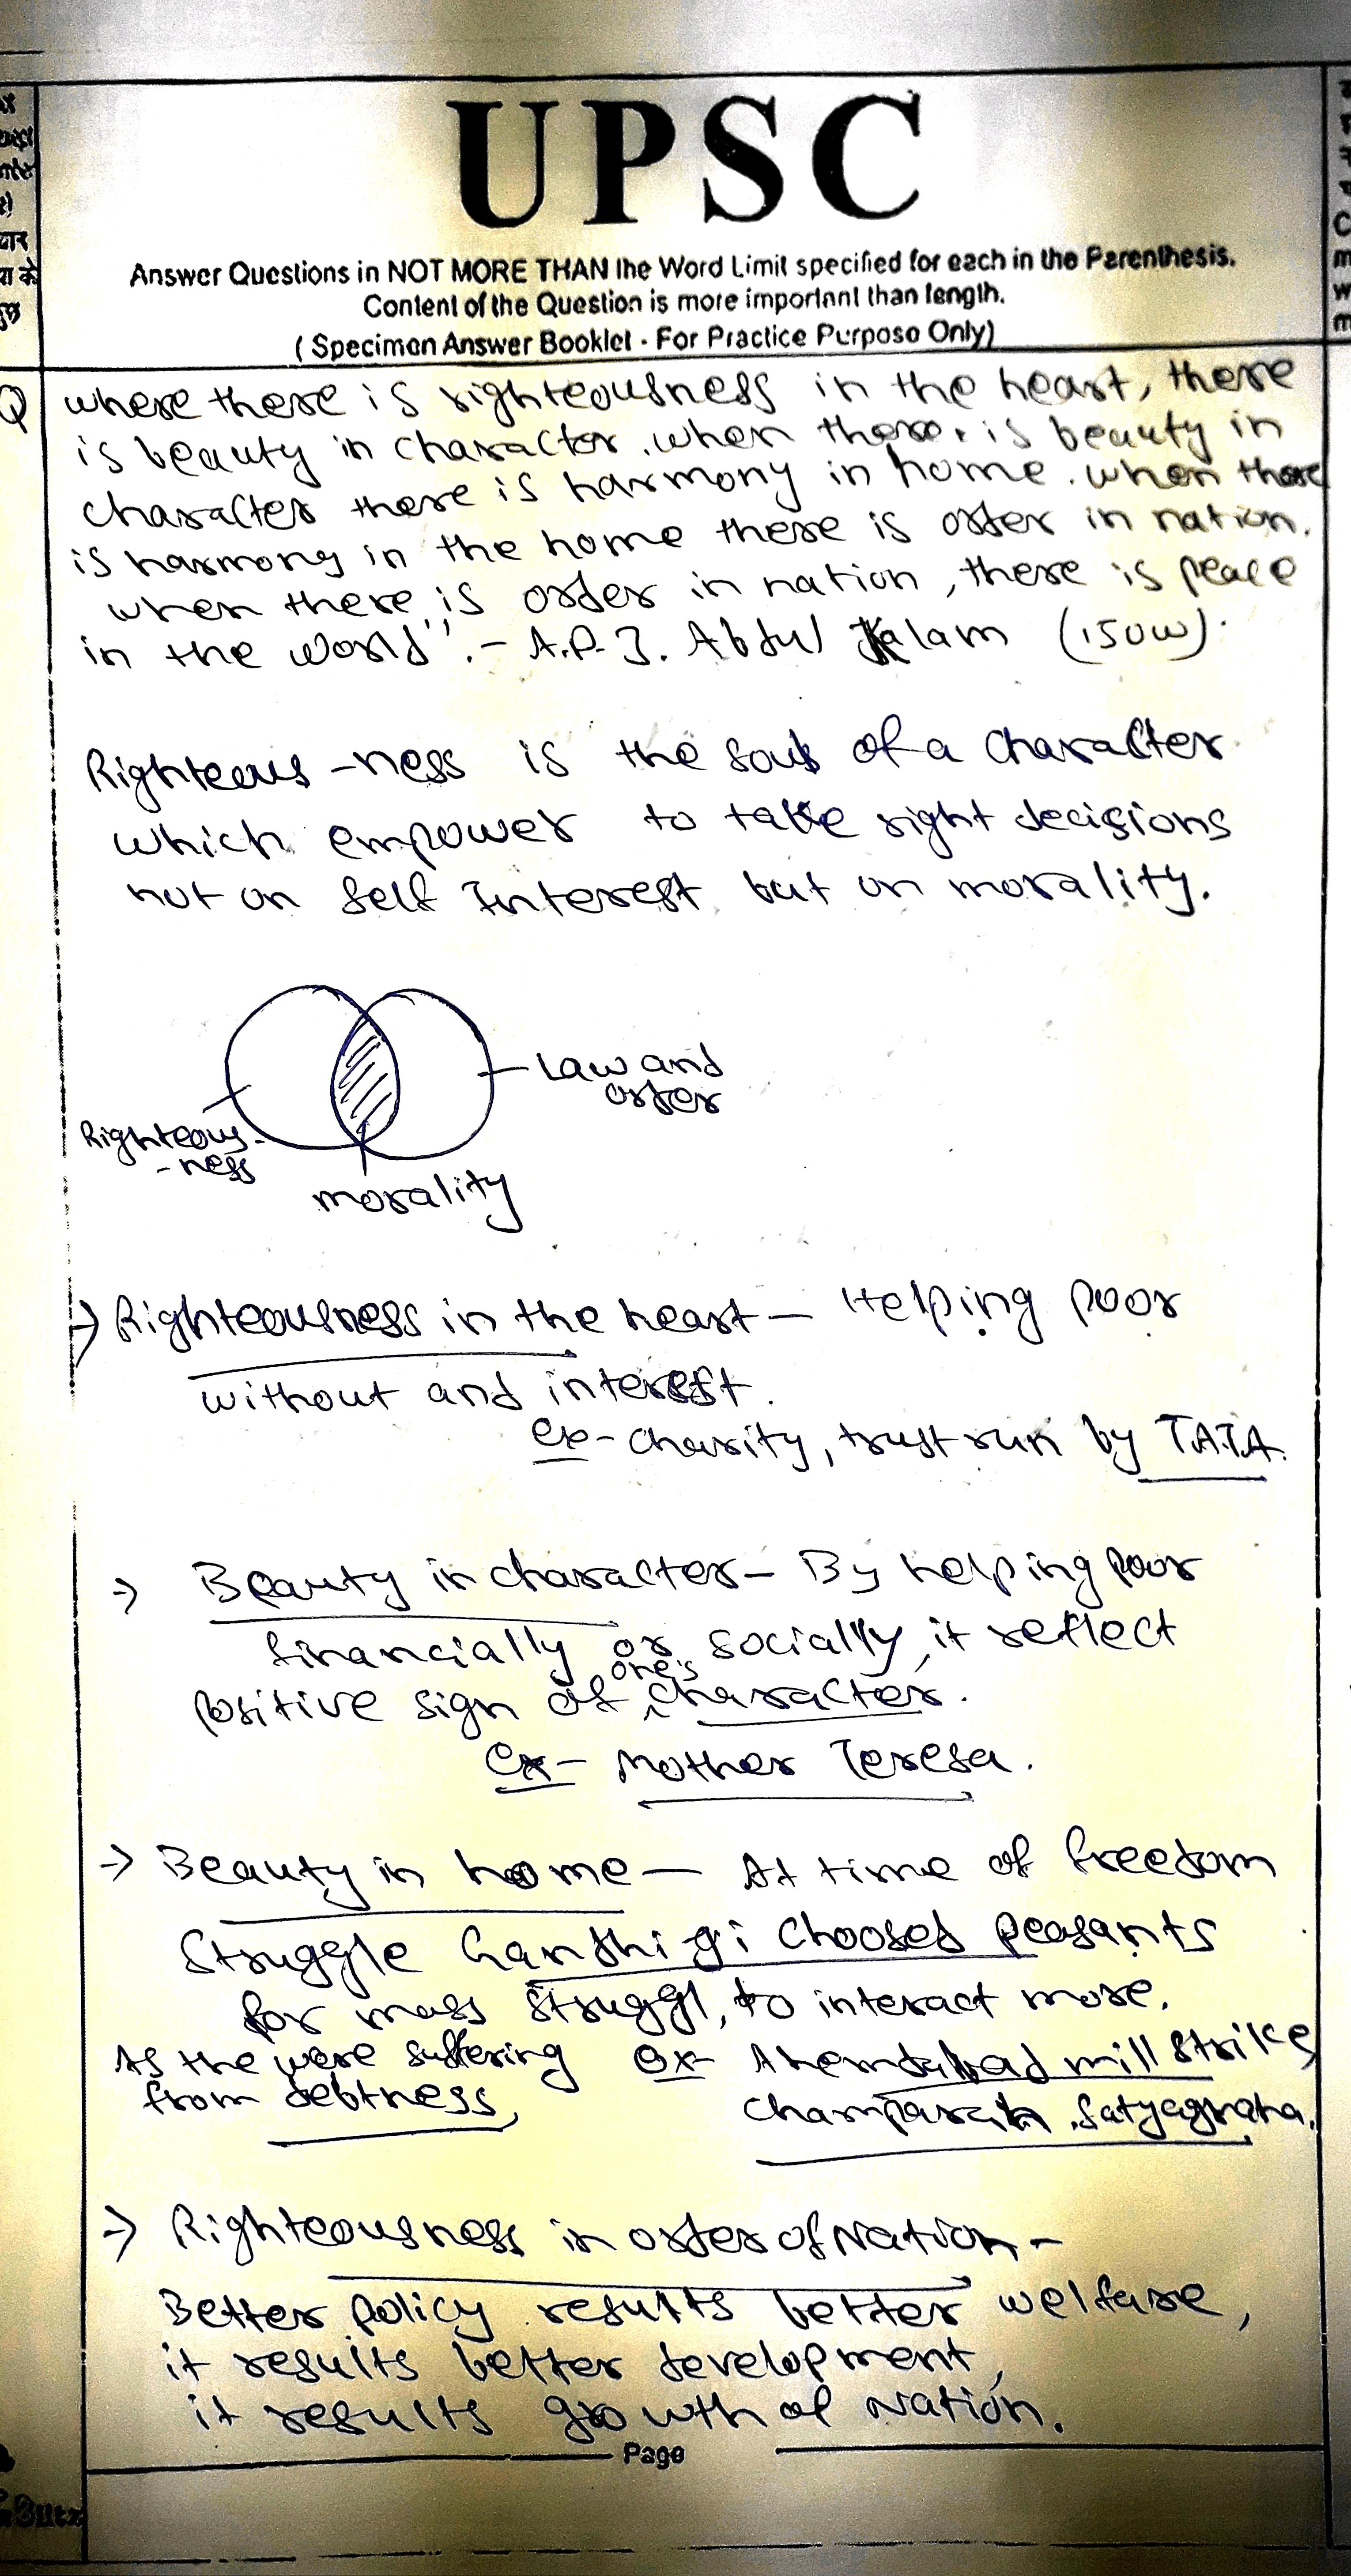 UPSC
Answer Questions in NOT MORE THAN the Word Limit specified for each in the Parenthesis.
Content of the Question is more important than length.
( Specimen Answer Booklet - For Practice Purpose Only)
Q where there is righteousness in the heart, there
is beauty in character. when there is beauty in
character there is harmony in home. when there
is harmony in the home there is order in nation.
when there is order in nation, there is peace
in the world". - A.P.J. Abdul Kalam (150w).
Righteous-ness is the soul of a character
which empower to take right decisions
not on self Interest but on morality.
Law and
order
Righteous-
-ness
morality
→ Righteousness in the heart - Helping poor
without and interest.
ex - charity, trust run by TATA.
→ Beauty in character - By helping poor
financially or socially, it reflect
positive sign of one's character.
ex - Mother Teresa.
→ Beauty in home - At time of freedom
Struggle Gandhi gi choosed peasants
for mass struggl, to interact more.
As the were suffering ex- Ahemdabad mill strike,
from debtness, Champaran Satyagraha.
→ Righteousness in order of Nation -
Better policy results better welfare,
it results better development,
it results growth of Nation.
Page